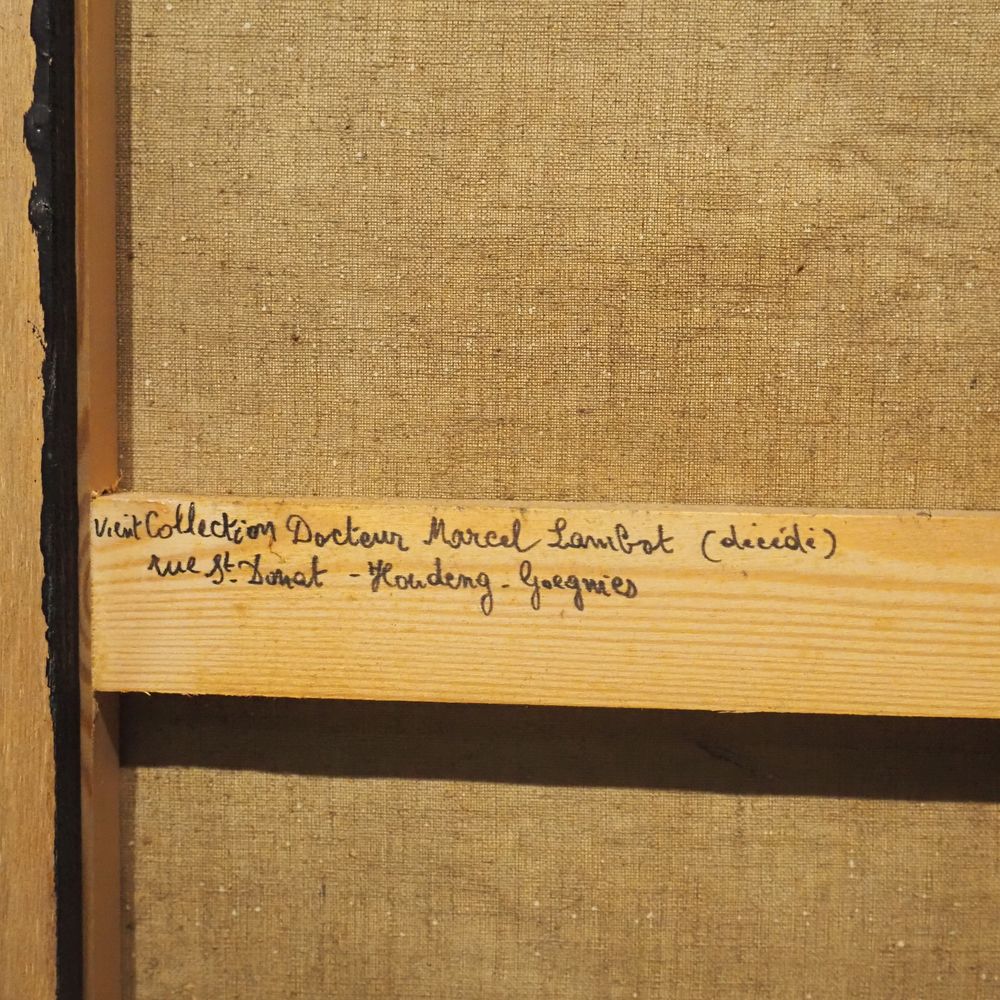 Vient Collection Docteur Marcel Lambot (décédé)
rue St. Donat - Houdeng - Goegnies